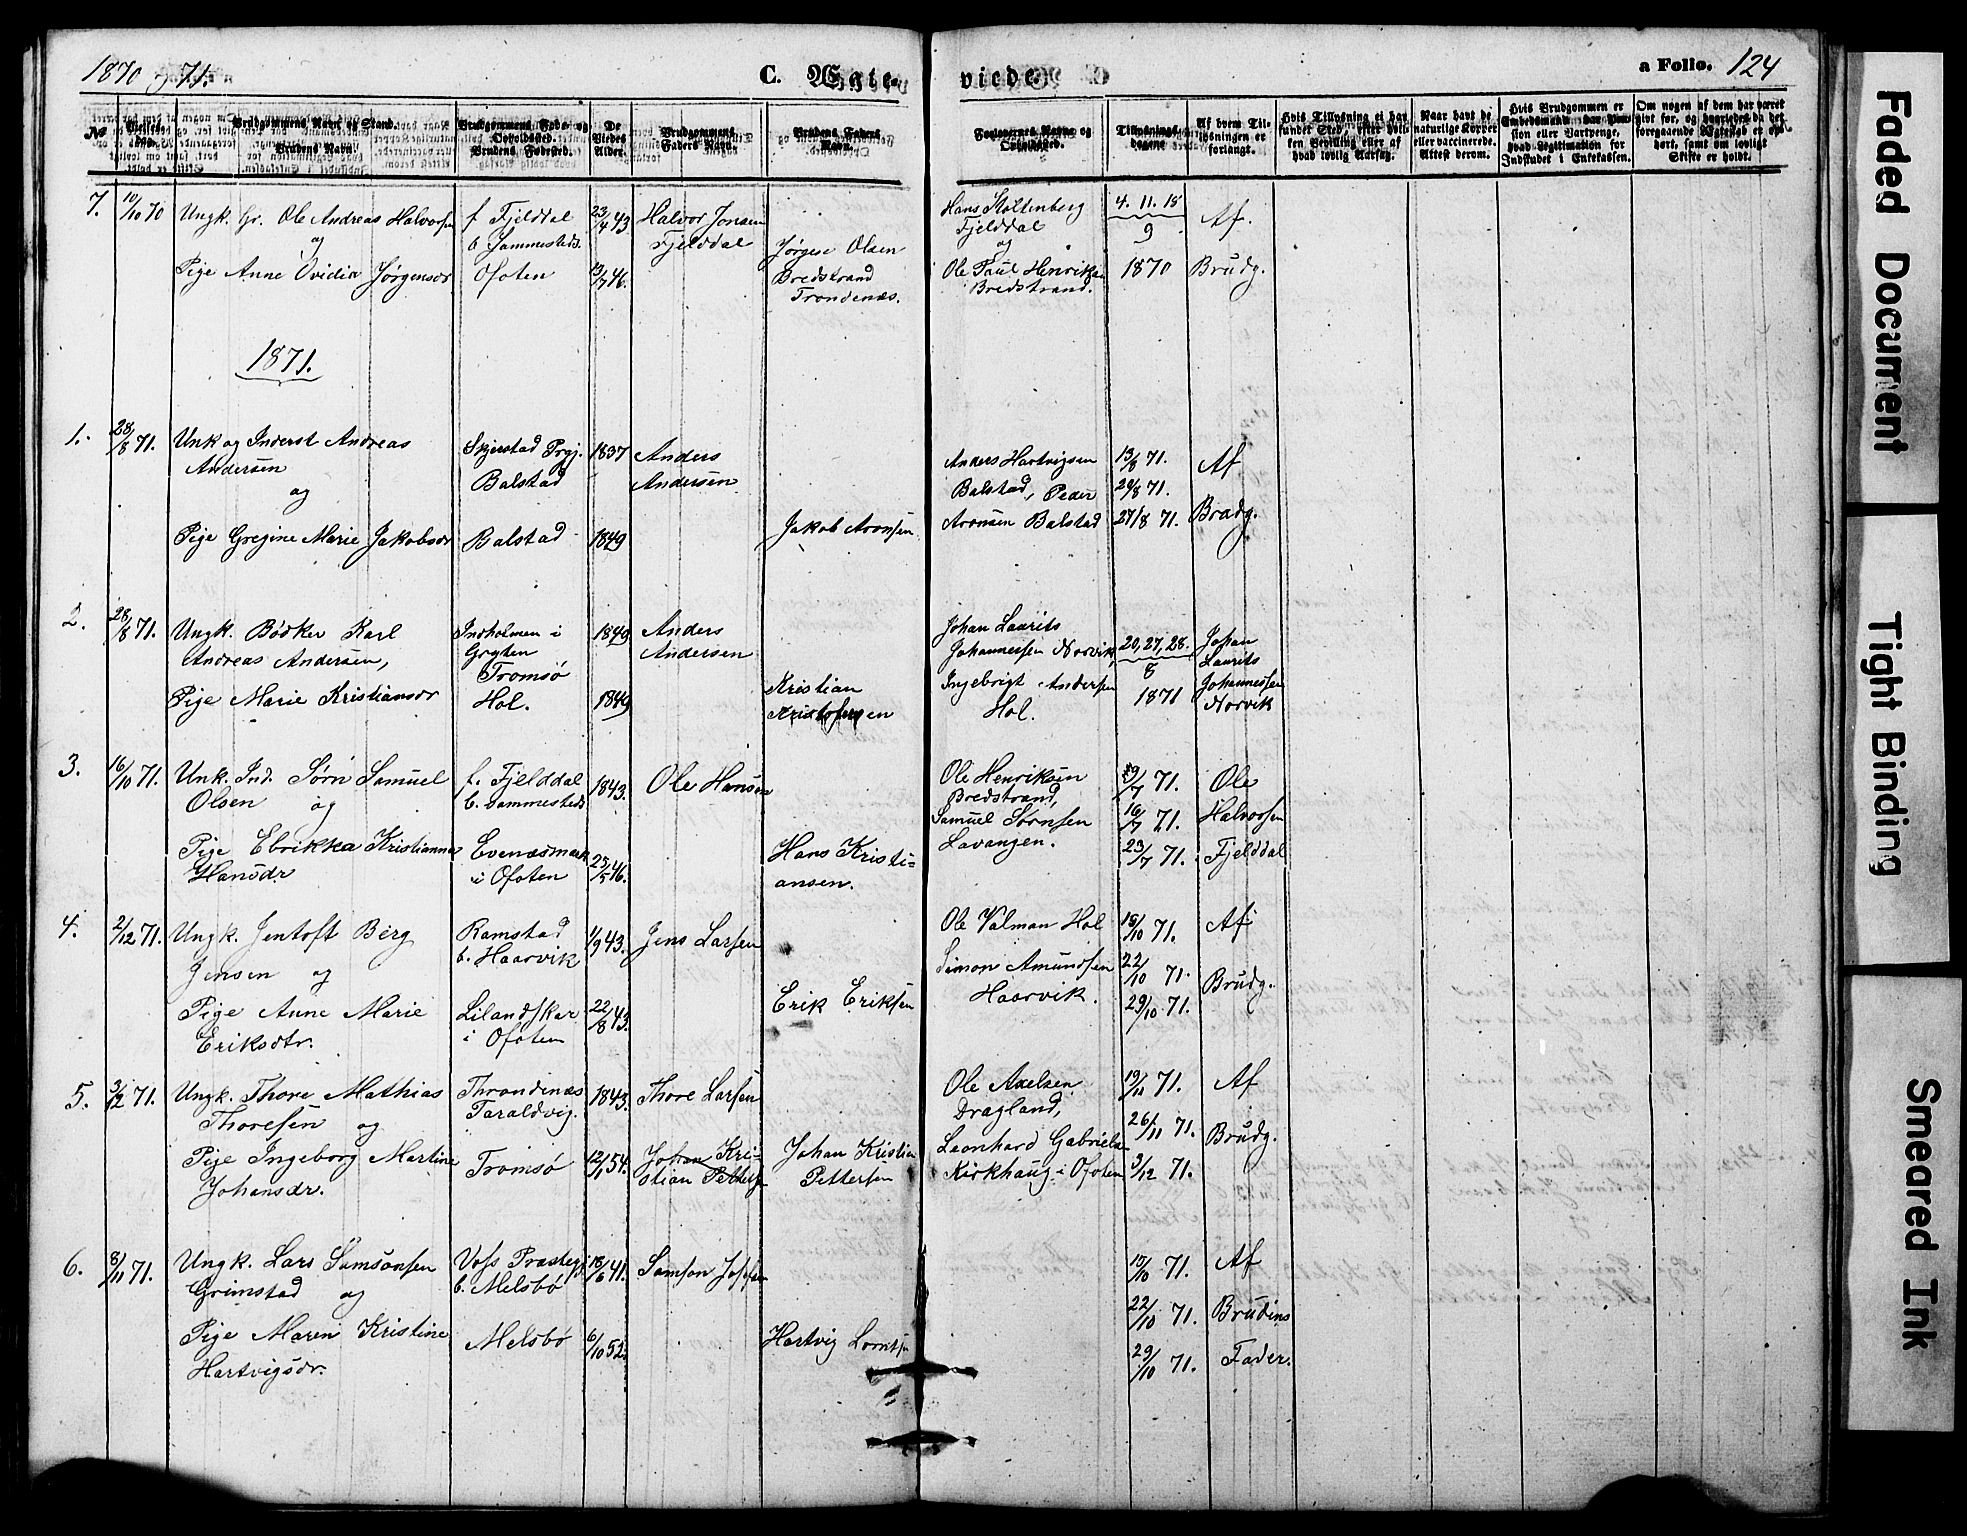 1870 og 71.
C. Ægte-
viede.
a Folio. 124
No
Vielses-
Brudgommens Navn og Stand.
Brudens Navn.
Brudgommens Føde- og Opholdssted.
Brudens Fødested.
De Viedes Alder.
Brudgommens Faders Navn.
Brudens Faders Navn.
Forlovernes Navne og Opholdssted.
Tillysnings-dagene
Af hvem Tillysningen er forlangt.
Hvis Tillysning ei har fundet Sted, efter hvilken Bevilling eller af hvad lovlig Aarsag.
Naar havt de naturlige Kopper eller vaccinerede. Attest derom.
Hvis Brudgommen er Embedsmand, har Pension eller Vartpenge, hvad Legitimation for Indskudet i Enkekassen.
Om nogen af dem har været givt før, og hvorledes da det foregaaende Ægteskab er ophørt, samt om lovligt Skifte er holdt.
7. 10/10 70 Ungk. Gr. Ole Andreas Halvorsen
og
Pige Anne Ovidia Jørgensdr
f Fjelddal
b. Sammesteds.
Ofoten
23/4 43
13/7 46.
Halvor Jonsen
Fjelddal
Jørgen Olsen
Bredstrand
Trondenæs.
Hans Stoltenberg
Fjelddal
og
Ole Paul Henriksen
Bredstrand.
4. 11. 18
9
1870
Af.
Brudg.
1871.
1. 28/8 71. Unk og Inderst Andreas
Andersen
og
Pige Gregine Marie Jakobsdr
Skjerstad Prgj.
Balstad
Balstad
1837
1849
Anders
Andersen
Jakob Aronsen
Anders Hartvigsen
Balstad, Peder
Aronsen Balstad
13/8 71.
20/8 71.
27/8 71.
Af
Brudg.
2. 28/8 71. Ungk. Bødker Karl
Andreas Andersen,
Pige Marie Kristiansdr
Indholmen i
Gryten
Tromsø
Hol.
1849
1849
Anders
Andersen
Kristian
Kristofersen
Johan Laurits
Johannessen Norvik,
Ingebrigt Andersen
Hol.
20, 27, 28.
8
1871
Johan
Laurits
Johannessen
Norvik
3. 16/10 71. Unk. Ind. Sørn Samuel
Olsen og
Pige Ebrikka Kristianna
Hansdr
f. Fjelddal
b. sammesteds
Evenæsmark
i Ofoten
1843.
25/5 46.
Ole Hansen
Hans Kristi=
ansen.
Ole Henriksen
Bredstrand,
Samuel Sørnsen
Lavangen.
9/7 71.
16/7 71.
23/7 71.
Ole
Halvorsen
Fjelddal
4. 2/12 71. Ungk. Jentoft Berg
Jensen og
Pige Anne Marie
Eriksdtr.
Ramstad
b. Haarvik
Lilandskar
i Ofoten
1/9 43.
22/8 43.
Jens Larsen
Erik Eriksen
Ole Valman Hol
Simon Amundsen
Haarvik.
15/10 71.
22/10 71.
29/10 71.
Af
Brudg.
5. 3/12 71. Ungk. Thore Mathias
Thoresen og
Pige Ingeborg Martine
Johansdr.
Throndenæs
Taraldvig.
Tromsø
1843.
12/1 54.
Thore Larsen
Johan Kri-
stian Pettersen
Johan Kristian
Pettersen
Ole Axelsen
Dragland,
Leonhard Gabrielsen
Kirkhaug i Ofoten
19/11 71.
26/11 71.
3/12 71.
Af
Brudg.
6. 8/11 71. Ungk. Lars Samsonsen
Grimstad og
Pige Maren Kristine
Hartvigsdr.
Voss Præstegj
b. Melsbø
Melsbø
18/6 41.
6/10 52.
Samson
Hartvig
15/10 71.
22/10 71.
29/10 71.
Af
Brudens
Fader.
Faded Document
Tight Binding
Smeared Ink